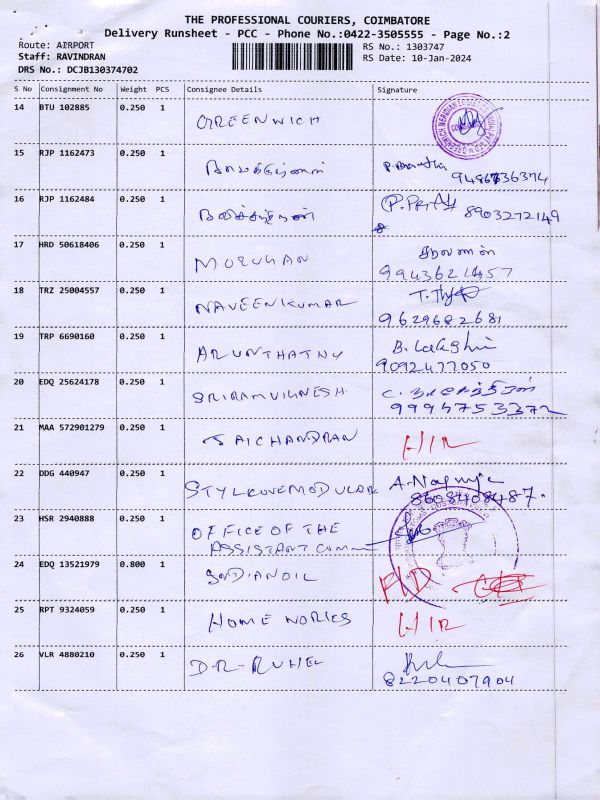 THE PROFESSIONAL COURIERS, COIMBATORE
Delivery Runsheet - PCC - Phone No.:0422-3505555 - Page No.:2
Route: AIRPORT
RS No.: 1303747
Staff: RAVINDRAN
RS Date: 10-Jan-2024
DRS No.: DCJB130374702
S No Consignment No Weight PCS Consignee Details Signature
14 BTU 102885 0.250 1 GREENWICH
15 RJP 1162473 0.250 1
16 RJP 1162484 0.250 1 8903272149
17 HRD 50618406 0.250 1 MURUGAN
9943621457
18 TRZ 25004557 0.250 1 NAVEENKUMAR
9629682681
19 TRP 6690160 0.250 1 ARUNTHATHY
9092477050
20 EDQ 25624178 0.250 1 SRIRAMVIGNESH
21 MAA 572901279 0.250 1 JAICHANDRAN H/R
22 DDG 440947 0.250 1
23 HSR 2940888 0.250 1 OFFICE OF THE
ASSISTANT COMM
24 EDQ 13521979 0.800 1 INDIANOIL
25 RPT 9324059 0.250 1 HOME WORKS H/R
26 VLR 4880210 0.250 1 DR-RUHEL
8220407904